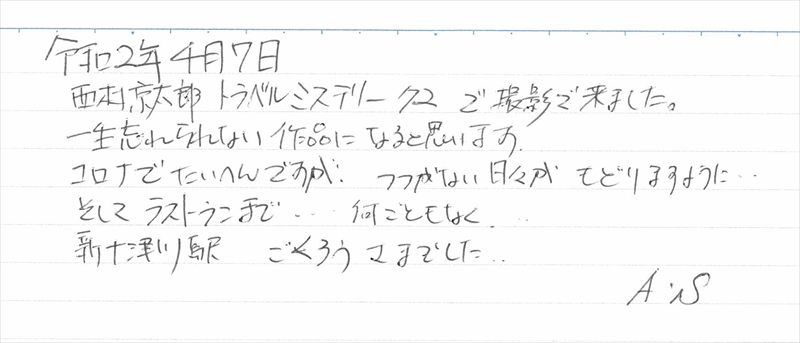 令和2年4月7日
西村京太郎 トラベルミステリー72 で撮影で来ました。
一生忘れられない作品になると思います。
コロナでたいへんですが、つつがない日々がもどりますように…
そして ラストランまで… 何ごともなく…
新十津川駅 ごくろうさまでした…
A.S